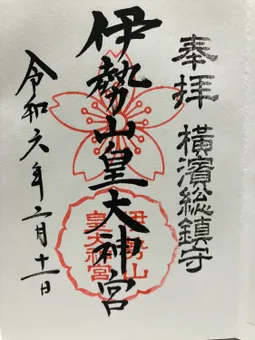 奉拝
横濱総鎮守
伊勢山皇大神宮
伊勢山
皇大神宮
令和六年二月十一日